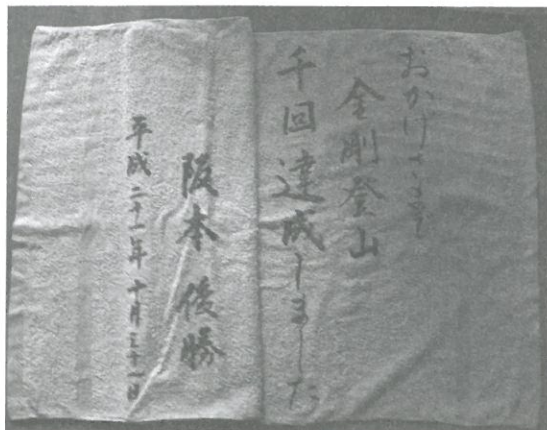 おかげさまで
金剛登山
千回達成しました
阪本俊勝
平成二十一年十月三十一日